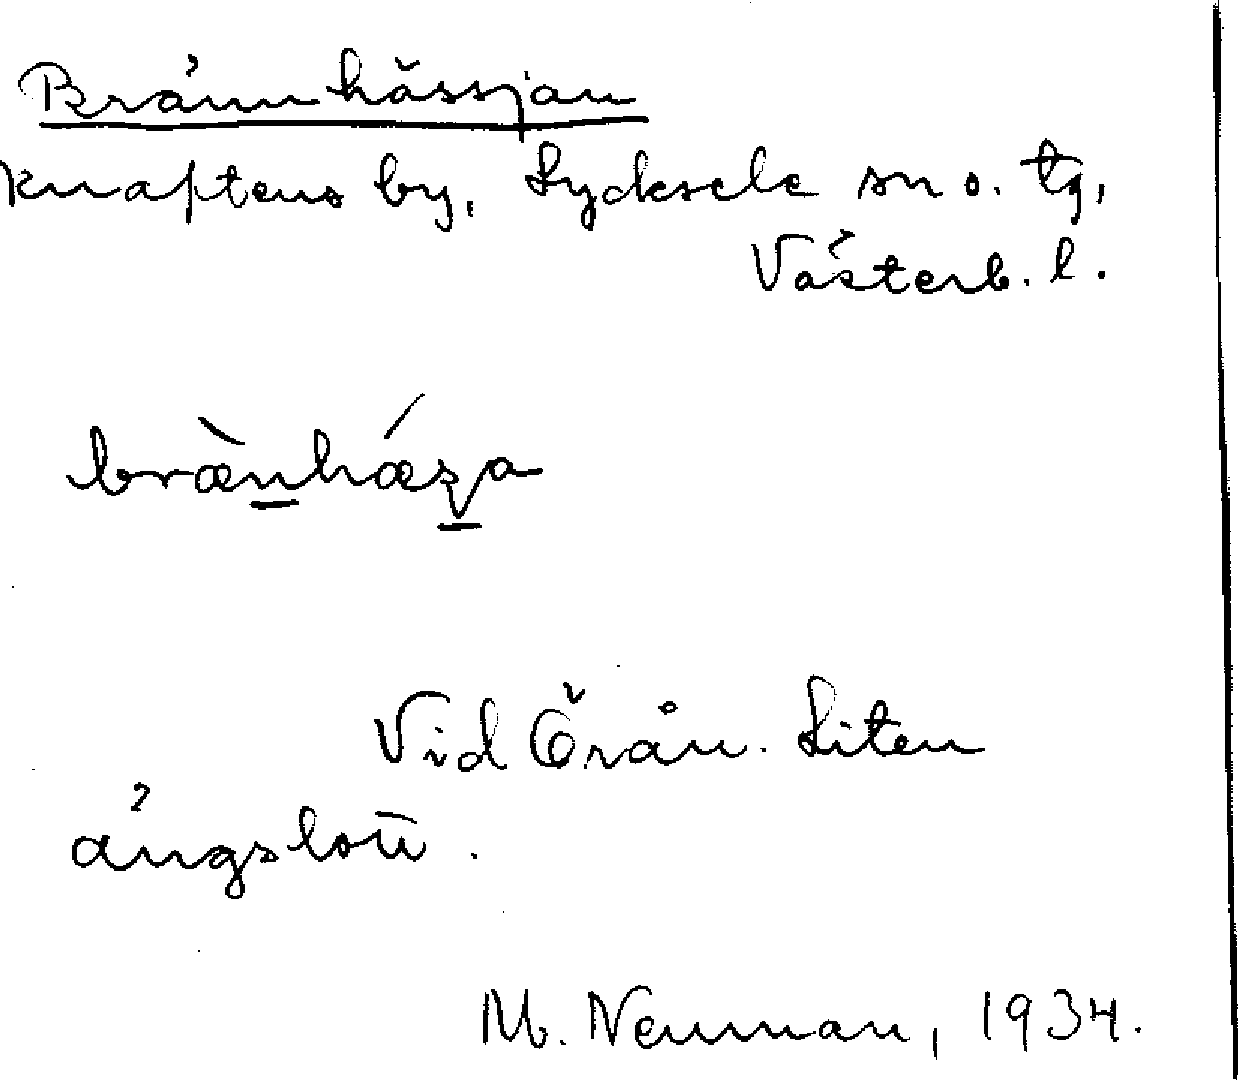 Brännhässjan
Knaftens by, Lycksele sn o. tg,
Västerb. l.
Vid Örån. Liten
ängslott.
M. Neuman, 1934.